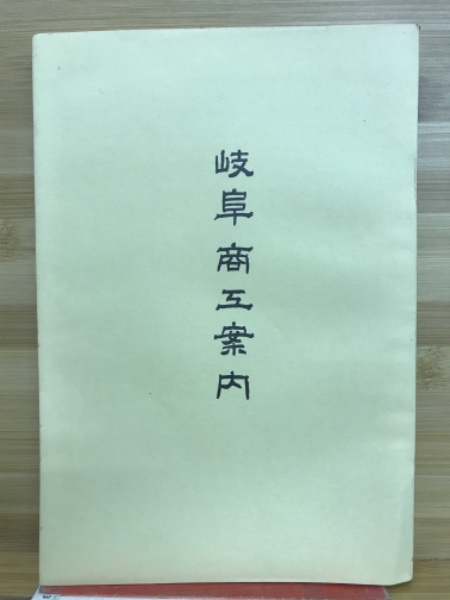 岐阜商工案内